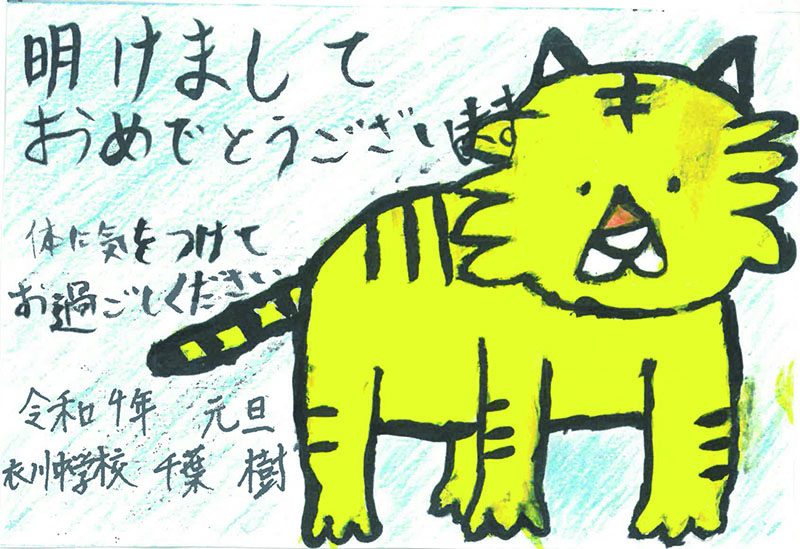 明けまして
おめでとうございます
体に気をつけて
お過ごしください
令和4年 元旦
衣川中学校 千葉 樹